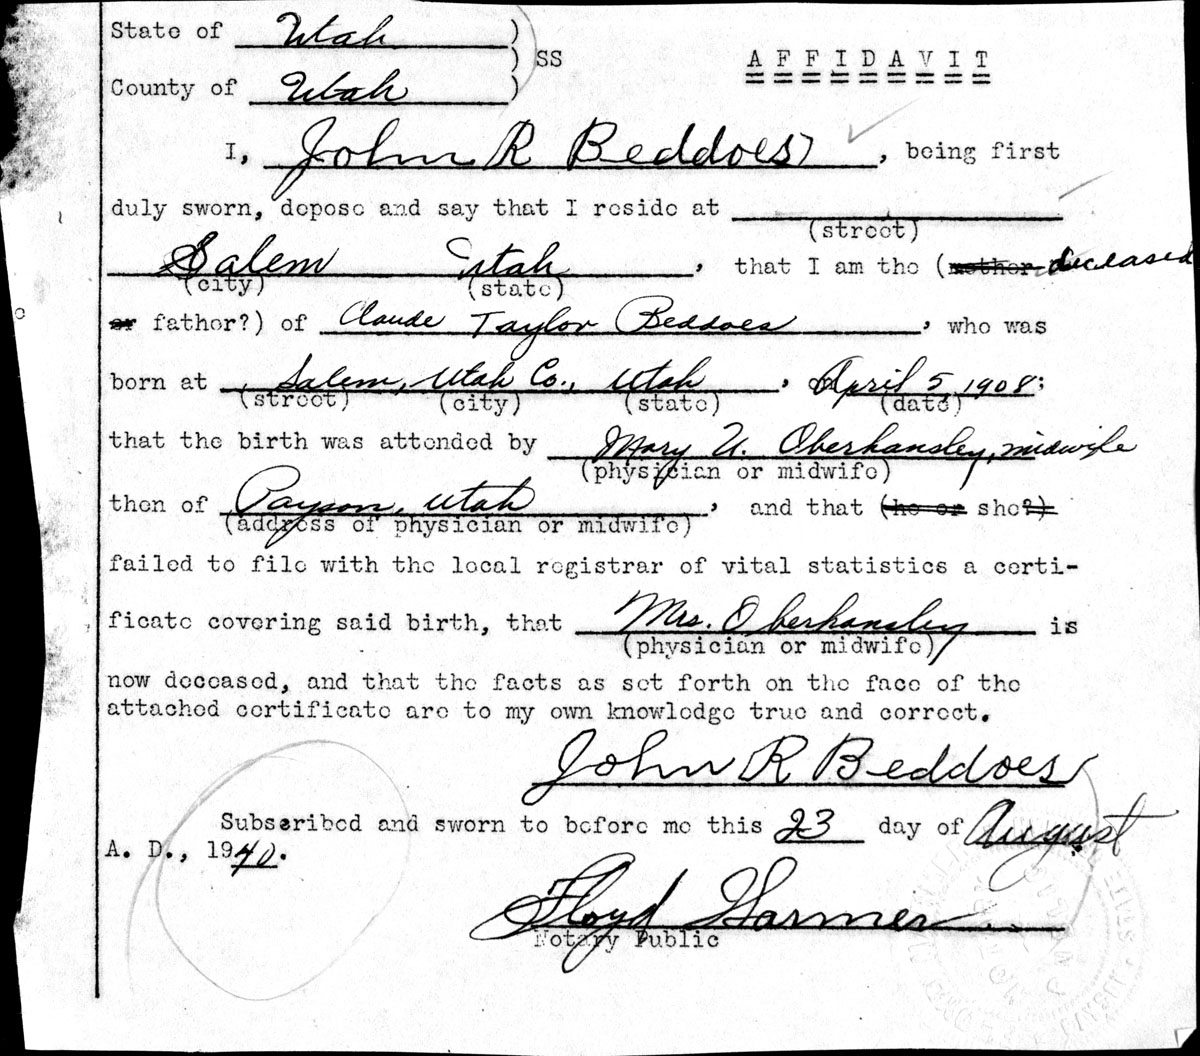 State of Utah )
) SS
County of Utah )
A F F I D A V I T
I, John R Beddoes, being first
duly sworn, depose and say that I reside at
(street)
Salem Utah, that I am the (mother deceased
(city) (state)
or father?) of Claude Taylor Beddoes, who was
born at , Salem, Utah Co., Utah, April 5, 1908;
(street) (city) (state) (date)
that the birth was attended by Mary U. Oberhansley, midwife
(physician or midwife)
then of Payson, Utah, and that (he or she?)
(address of physician or midwife)
failed to file with the local registrar of vital statistics a certi-
ficate covering said birth, that Mrs. Oberhansley is
(physician or midwife)
now deceased, and that the facts as set forth on the face of the
attached certificate are to my own knowledge true and correct.
John R Beddoes
Subscribed and sworn to before me this 23 day of August
A. D., 1940.
Floyd Harmer
Notary Public